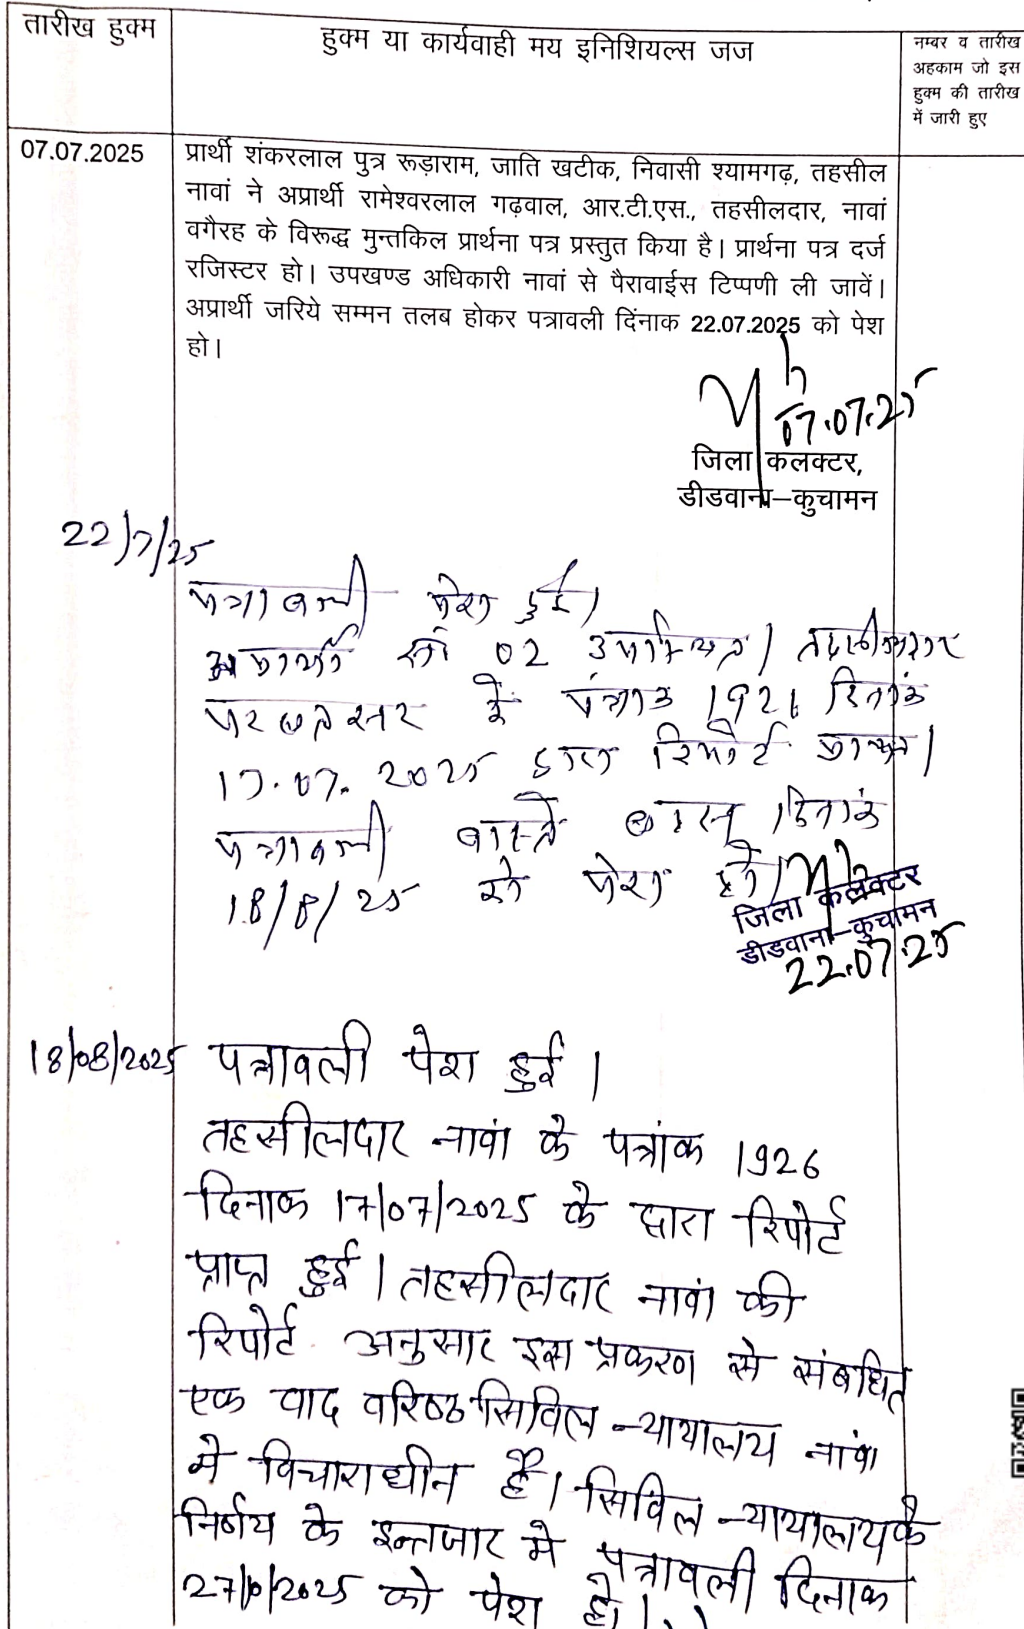 तारीख हुक्म
हुक्म या कार्यवाही मय इनिशियल्स जज
नम्बर व तारीख
अहकाम जो इस
हुक्म की तारीख
में जारी हुए
07.07.2025
प्रार्थी शंकरलाल पुत्र रूड़ाराम, जाति खटीक, निवासी श्यामगढ़, तहसील
नावां ने अप्रार्थी रामेश्वरलाल गढ़वाल, आर.टी.एस., तहसीलदार, नावां
वगैरह के विरूद्ध मुन्तकिल प्रार्थना पत्र प्रस्तुत किया है। प्रार्थना पत्र दर्ज
रजिस्टर हो। उपखण्ड अधिकारी नावां से पैरावाईस टिप्पणी ली जावें।
अप्रार्थी जरिये सम्मन तलब होकर पत्रावली दिंनाक 22.07.2025 को पेश
हो।
07.07.25
जिला कलक्टर,
डीडवाना–कुचामन
22/7/25
पत्रावली पेश हुई।
अप्रार्थी सं० 02 उपस्थित। तहसीलदार
परबतसर के पत्रांक 1926 दिनांक
17.07.2025 द्वारा रिपोर्ट प्राप्त।
पत्रावली वास्ते बहस दिनांक
18/8/25 को पेश हो।
जिला कलक्टर
डीडवाना–कुचामन
22.07.25
18/08/2025
पत्रावली पेश हुई।
तहसीलदार नावां के पत्रांक 1926
दिनाक 17/07/2025 के द्वारा रिपोर्ट
प्राप्त हुई। तहसीलदार नावां की
रिपोर्ट अनुसार इस प्रकरण से संबधित
एक वाद वरिष्ठ सिविल न्यायालय नावां
मे विचाराधीन है। सिविल न्यायालय के
निर्णय के इन्तजार मे पत्रावली दिनाक
27/10/2025 को पेश हो।